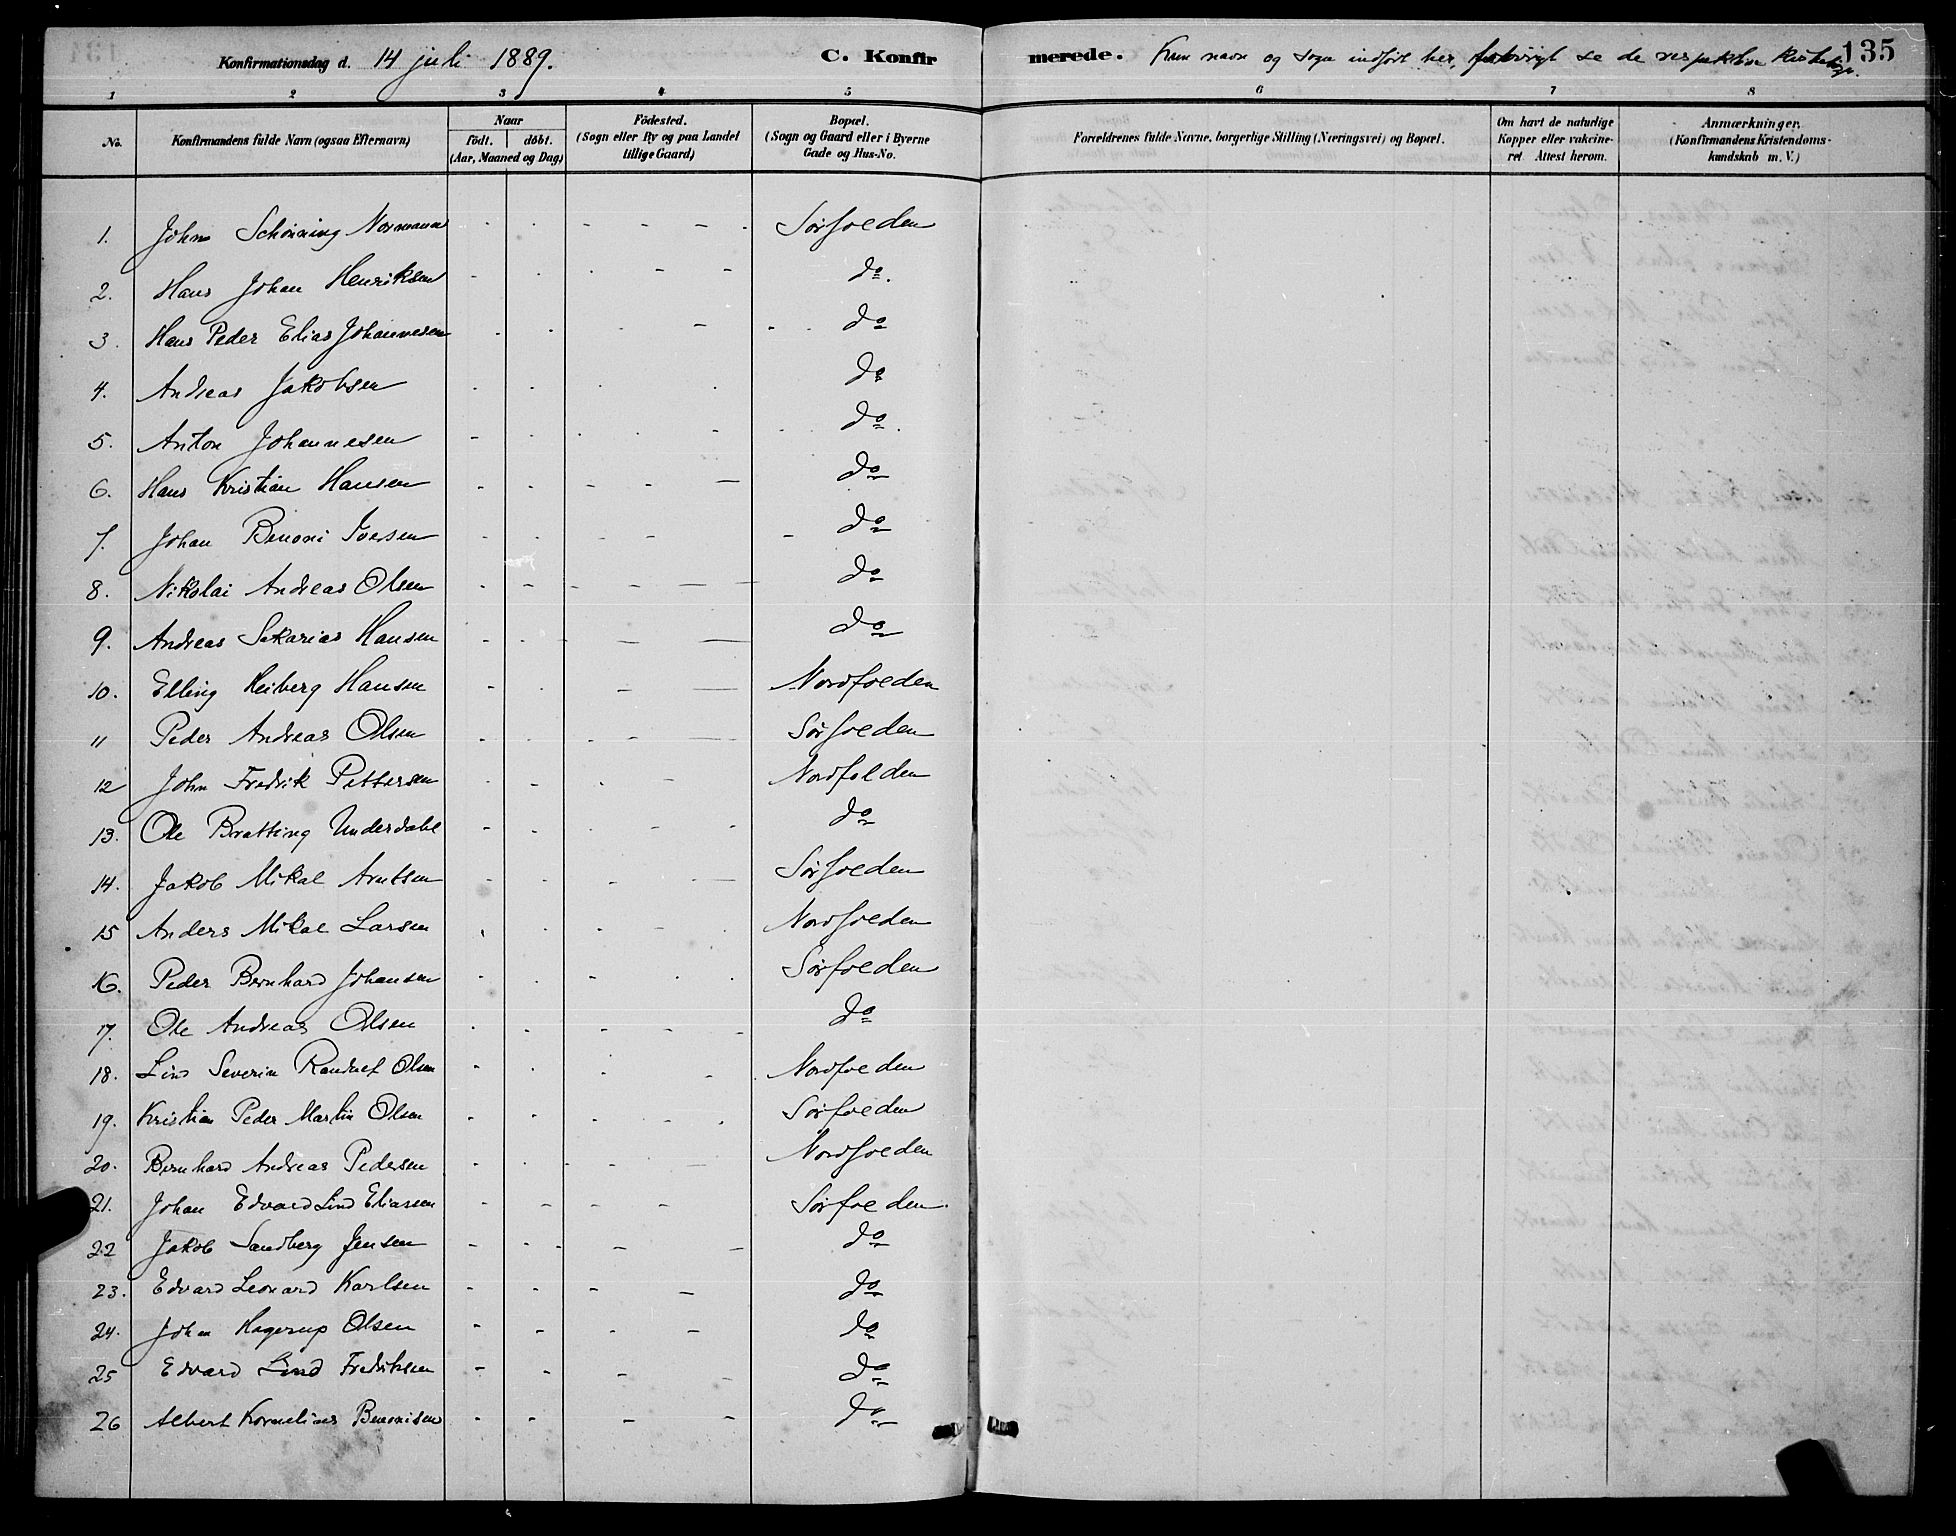 Konfirmationsdag d. 14 juli 1889. C. Konfirmerede. Kun navn og sogn indført her, forøvrigt se de respektive 135
1 2 3 4 5 6 7 8
No.
Konfirmandens fulde Navn (ogsaa Efternavn)
Naar
födt. döbt.
(Aar, Maaned og Dag)
Födested.
(Sogn eller By og paa Landet
tillige Gaard)
Bopæl.
(Sogn og Gaard eller i Byerne
Gade og Hus-No.
Forældrenes fulde Navne, borgerlige Stilling (Næringsvei) og Bopæl.
Om havt de naturlige
Kopper eller vakcine-
ret. Attest herom.
Anmærkninger.
(Konfirmandens Kristendoms-
kundskab m. V.)
1. John Schønning Normann - - - - - Sørfolden
2. Hans Johan Henriksen - - - - - do.
3. Hans Peder Elias Johannesen - - - - - do
4. Andreas Jakobsen - - - - do
5. Anton Johannesen - - - - - do.
6. Hans Kristian Hansen - - - - - do
7. Johan Benoni Iversen - - - - - do
8. Nikolai Andreas Olsen - - - - - do
9. Andreas Sakarias Hansen - - - - do
10. Elling Heiberg Hansen - - - - Nordfolden
11 Peder Andreas Olsen - - - - - Sørfolden
12 John Fredrik Pettersen - - - - Nordfolden
13. Ole Bratting Underdahl - - - - do
14. Jakob Mikal Arntsen - - - - Sørfolden
15 Anders Mikal Larsen - - - - - Nordfolden
16. Peder Bernhard Johansen - - - - - Sørfolden
17. Ole Andreas Olsen - - - - - do
18. Lind Severin Randulf Olsen - - - - Nordfolden
19. Kristian Peder Martin Olsen - - - - - Sørfolden
20. Bernhard Andreas Pedersen - - - - - Nordfolden
21. Johan Edvard Lind Eliassen - - - - Sørfolden.
22 Jakob Sandberg Jensen - - - - - do
23. Edvard Leonard Karlsen - - - - do
24. Johan Hagerup Olsen - - - - do
25 Edvard Lind Fredriksen - - - - do
26 Albert Kornelius Benonisen - - - - do